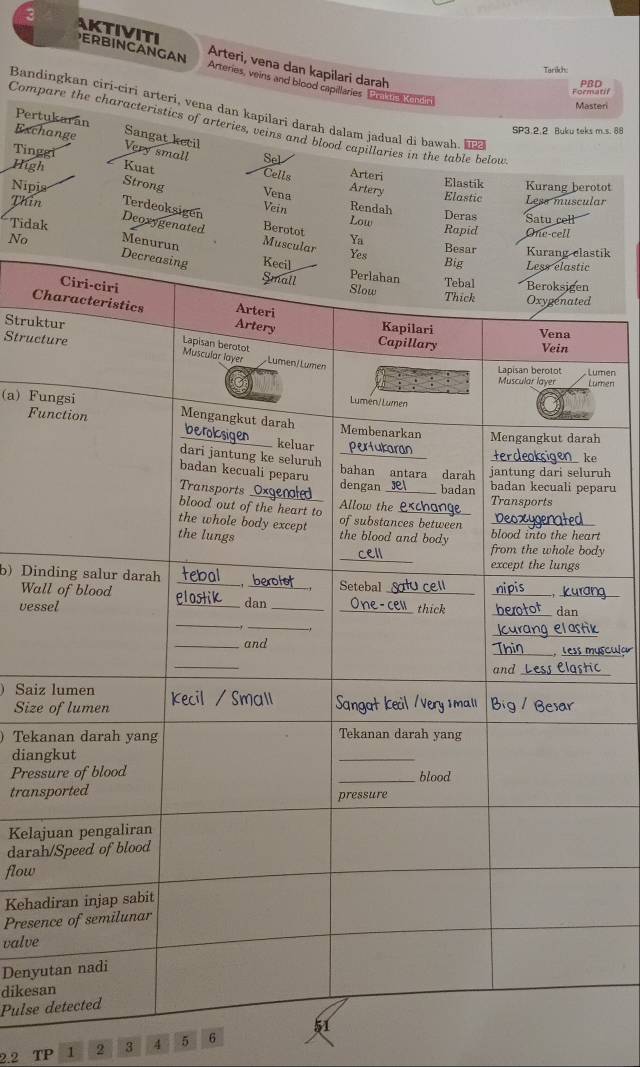 3
AKTIVITI
PERBINCANGAN
Arteri, vena dan kapilari darah
Arteries, veins and blood capillaries Praktis Kendiri
Tarikh:
PBD
Formatif
Masteri
Bandingkan ciri-ciri arteri, vena dan kapilari darah dalam jadual di bawah. TP2
Compare the characteristics of arteries, veins and blood capillaries in the table below.
SP3.2.2 Buku teks m.s. 88
Pertukaran
Exchange
Sangat kecil
Very small
Sel
Cells
Arteri
Artery
Elastik
Elastic
Kurang berotot
Less muscular
Tinggi
High
Kuat
Strong
Vena
Vein
Rendah
Low
Deras
Rapid
Satu cell
One-cell
Nipis
Thin
Terdeoksigen
Deoxygenated
Berotot
Muscular
Ya
Yes
Besar
Big
Kurang elastik
Less elastic
Tidak
No
Menurun
Decreasing
Kecil
Small
Perlahan
Slow
Tebal
Thick
Beroksigen
Oxygenated
Ciri-ciri
Characteristics
Arteri
Artery
Kapilari
Capillary
Vena
Vein
Struktur
Structure
Lapisan berotot
Muscular layer
Lumen/Lumen
Lumen/Lumen
Lapisan berotot
Muscular layer
Lumen
Lumen
(a) Fungsi
Function
Mengangkut darah
beroksigen keluar
dari jantung ke seluruh
badan kecuali peparu
Transports Oxgenated
blood out of the heart to
the whole body except
the lungs
Membenarkan
pertukaran
bahan antara darah
dengan sel badan
Allow the exchange
of substances between
the blood and body
cell
Mengangkut darah
terdeoksigen ke
jantung dari seluruh
badan kecuali peparu
Transports
Deoxygenated
blood into the heart
from the whole body
except the lungs
b) Dinding salur darah
Wall of blood
vessel
tebal, berotot,
elastik dan
and
Setebal satu cell
One-cell thick
nipis, kurang
berotot dan
kurang elastik
Thin, less muscular
and Less elastic
) Saiz lumen
Size of lumen
Kecil / Small
Sangat kecil /very small
Big / Besar
) Tekanan darah yang
diangkut
Pressure of blood
transported
Tekanan darah yang
blood
pressure
Kelajuan pengaliran
darah/Speed of blood
flow
Kehadiran injap sabit
Presence of semilunar
valve
Denyutan nadi
dikesan
Pulse detected
51
2.2 TP 1 2 3 4 5 6